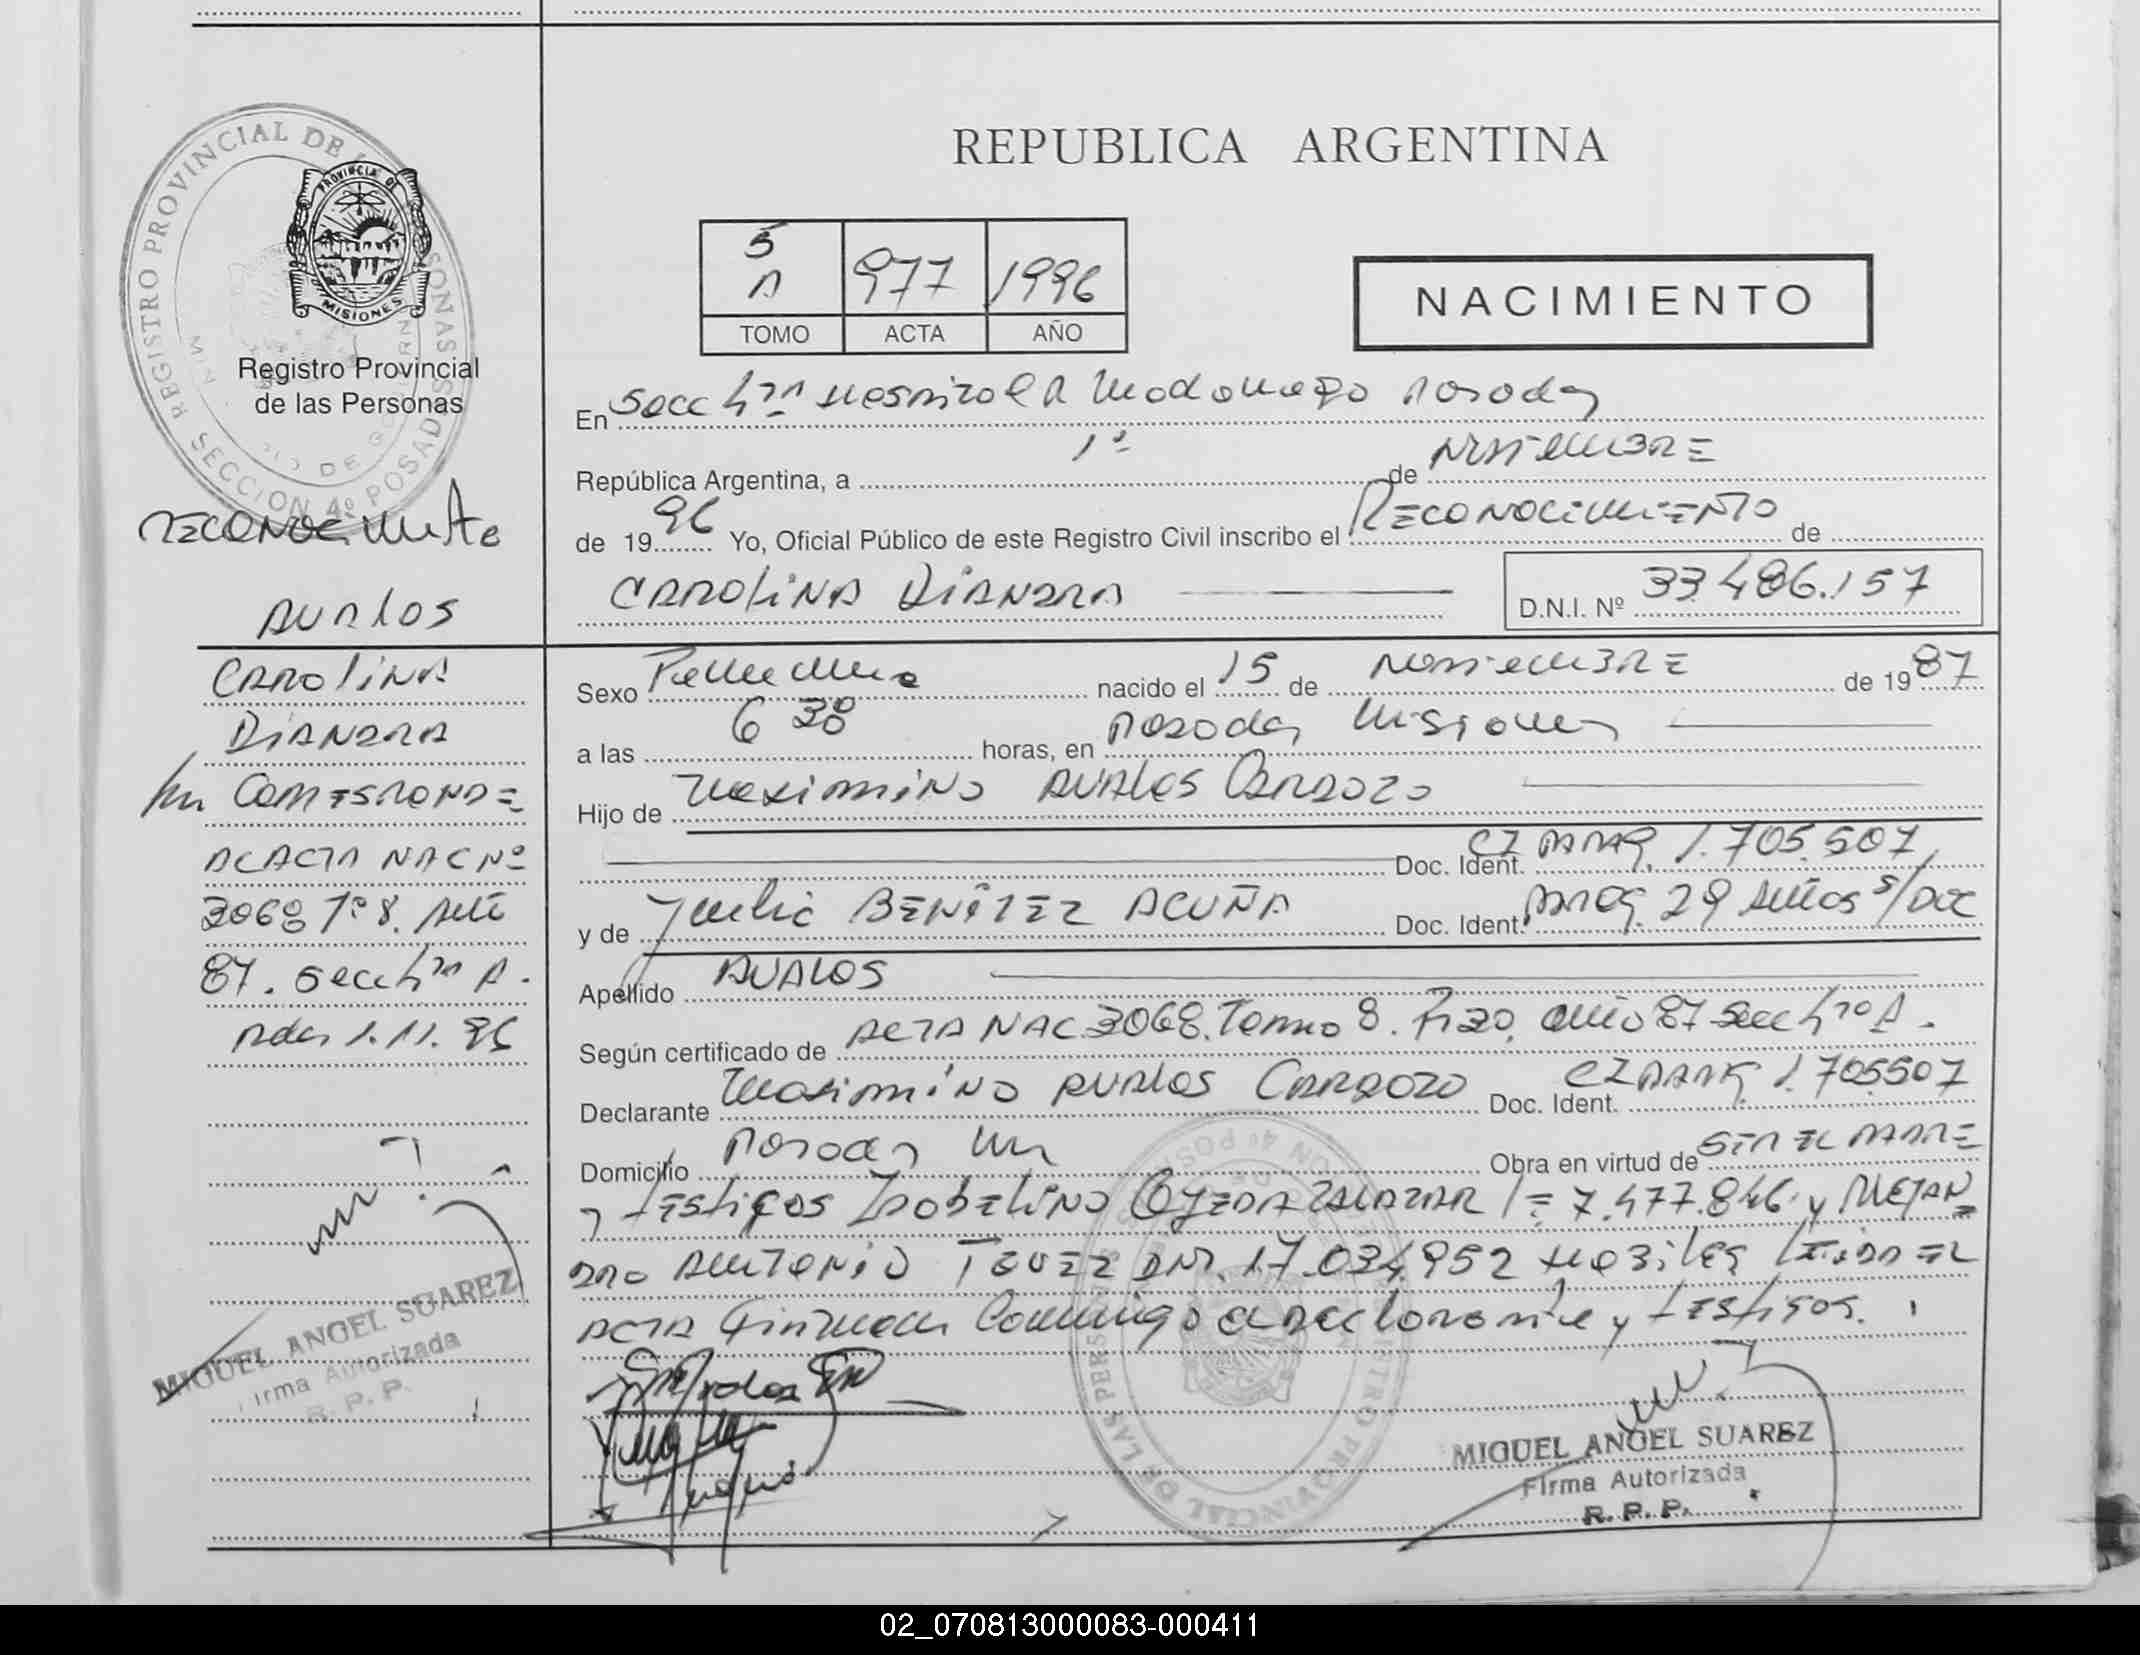 REGISTRO PROVINCIAL DE
SECCION 4º POSADAS
PROVINCIA DE
MISIONES
Registro Provincial
de las Personas
REPUBLICA ARGENTINA
5
A 977 1996
TOMO ACTA AÑO
NACIMIENTO
En Secc 4ta Hospital R Madariaga Posadas
República Argentina, a 1º de Noviembre
de 1996 Yo, Oficial Público de este Registro Civil inscribo el Reconocimiento de
Carolina Dianora
D.N.I. Nº 33.486.157
Sexo Femenino nacido el 15 de Noviembre de 1987
a las 6 30 horas, en Posadas Misiones
Hijo de Maximino Avalos Cardozo
Doc. Ident. CI Parag. 1.705.507
y de Julia Benitez Acuña Doc. Ident. Parag. 29 años s/Doc
Apellido Avalos
Según certificado de Acta Nac 3068. Tomo 8. año 87 Secc 4ta A.
Declarante Maximino Avalos Cardozo Doc. Ident. CI Parag. 1.705507
Domicilio Posadas Mn Obra en virtud de ser el padre
y testigos Ojeda Salazar LE 7.477.846. y Alejan=
dro Antonio DNI. 17.034.952 habiles Leida el
acta firman Conmigo declarante y testigos.
MIGUEL ANGEL SUAREZ
Firma Autorizada
R. P. P.
Avalos
Carolina
Dianora
Mn Corresponde
al acta Nac Nº
3068 Tº 8. Año
87. Secc 4ta A.
Pdas 1.11.96
MIGUEL ANGEL SUAREZ
Firma Autorizada
R. P. P.
02_070813000083-000411